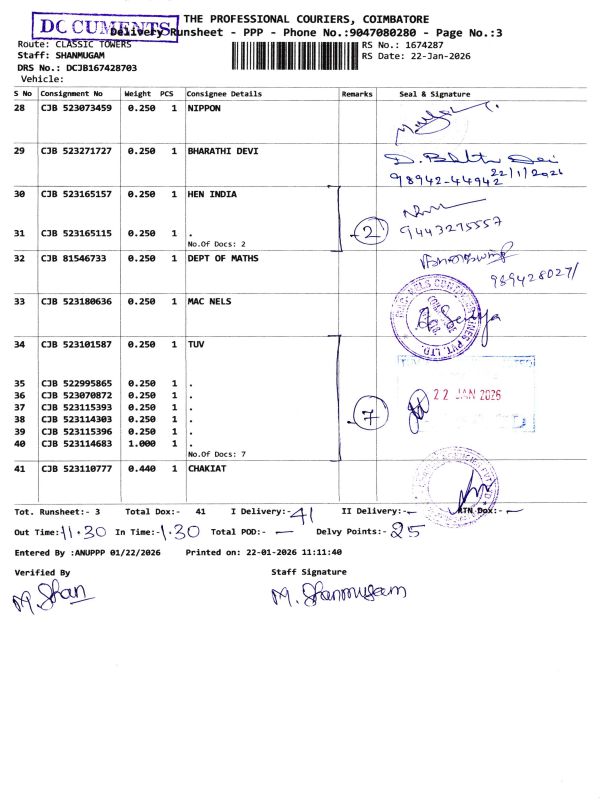 DOCUMENTS
THE PROFESSIONAL COURIERS, COIMBATORE
Delivery Runsheet - PPP - Phone No.:9047080280 - Page No.:3
Route: CLASSIC TOWERS
RS No.: 1674287
Staff: SHANMUGAM
RS Date: 22-Jan-2026
DRS No.: DCJB167428703
Vehicle:
S No Consignment No Weight PCS Consignee Details Remarks Seal & Signature
28 CJB 523073459 0.250 1 NIPPON
29 CJB 523271727 0.250 1 BHARATHI DEVI
98942-44942 22/1/2026
30 CJB 523165157 0.250 1 HEN INDIA
31 CJB 523165115 0.250 1 . 2 9443275557
No.Of Docs: 2
32 CJB 81546733 0.250 1 DEPT OF MATHS
989428027/
33 CJB 523180636 0.250 1 MAC NELS
34 CJB 523101587 0.250 1 TUV
35 CJB 522995865 0.250 1 .
36 CJB 523070872 0.250 1 . 22 JAN 2026
37 CJB 523115393 0.250 1 . 7
38 CJB 523114303 0.250 1 .
39 CJB 523115396 0.250 1 .
40 CJB 523114683 1.000 1 .
No.Of Docs: 7
41 CJB 523110777 0.440 1 CHAKIAT
Tot. Runsheet:- 3 Total Dox:- 41 I Delivery:- 41 II Delivery:- - RTN Dox:- -
Out Time:- 11.30 In Time:- 1.30 Total POD:- - Delvy Points:- 25
Entered By :ANUPPP 01/22/2026 Printed on: 22-01-2026 11:11:40
Verified By Staff Signature
M. Shan M. Shanmugam